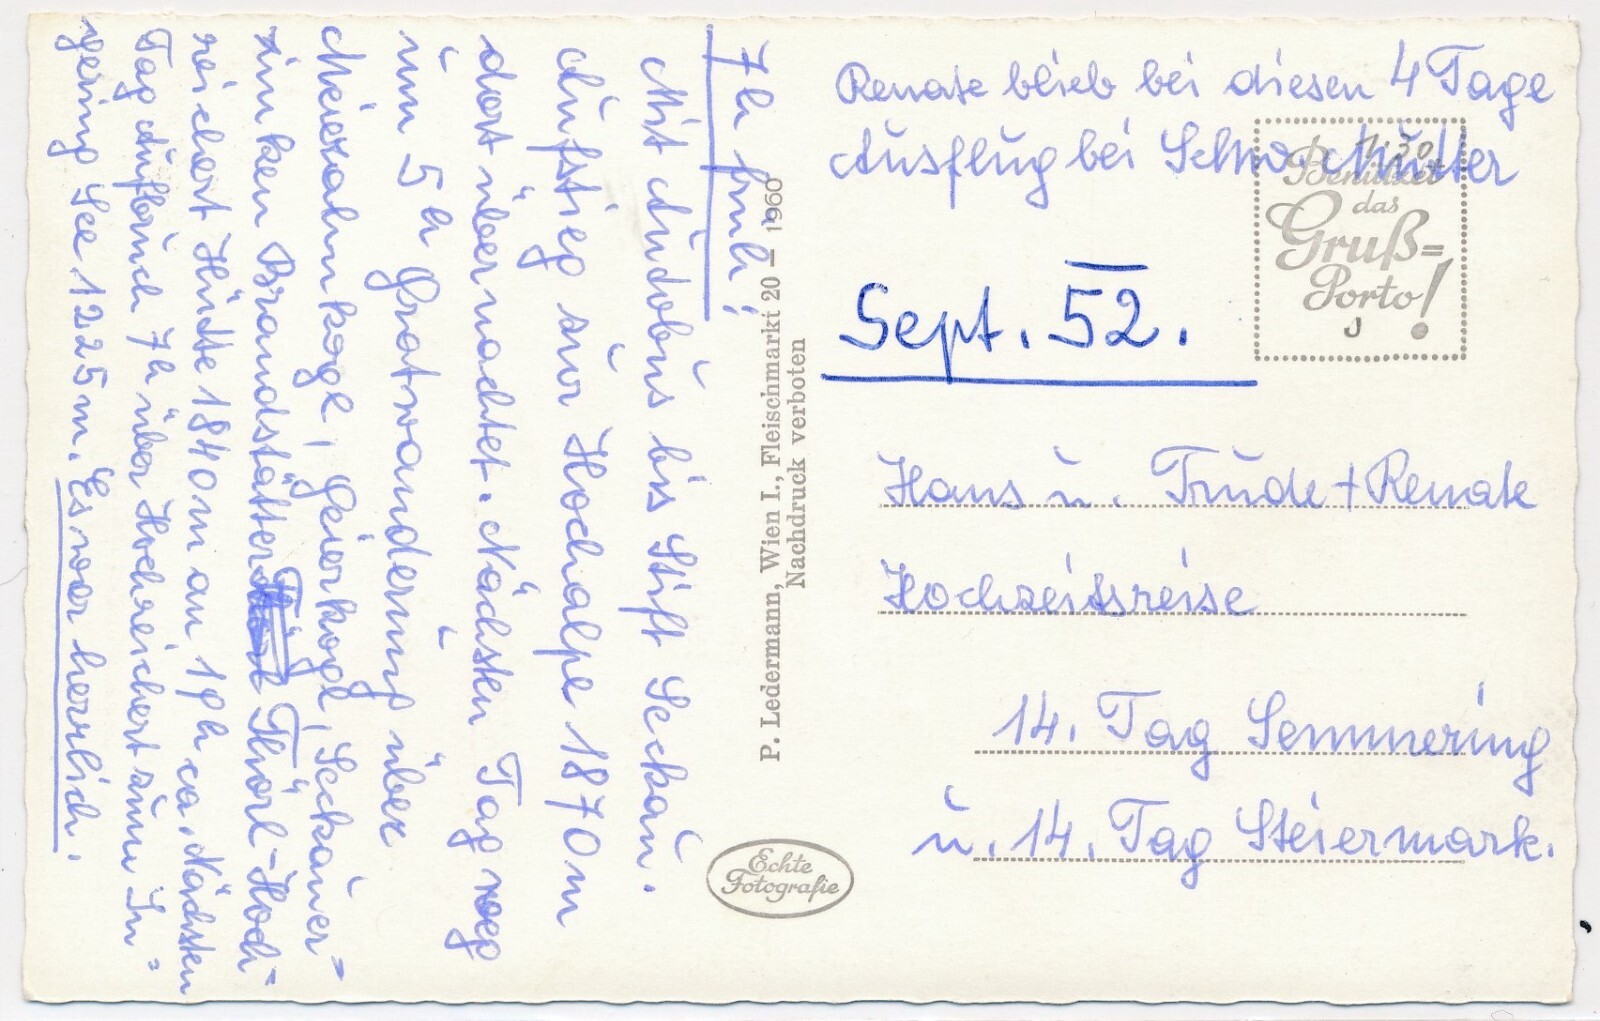 7h früh!
Mit Autobus bis Stift Seckau.
Aufstieg zur Hochalpe 1870m
dort übernachtet. Nächsten Tag weg
um 5h Gratwanderung über
Maierahmkogel, Geierkogel, Seckauer=
zinken Brandstätter Thörl-Hoch-
reichert Hütte 1840m an 19h ca. Nächsten
Tag Aufbruch 7h über Hochreichert zum In=
gering See 1225m. Es war herrlich.
P. Ledermann, Wien I., Fleischmarkt 20 — 1960
Nachdruck verboten
Echte
Fotografie
Renate blieb bei diesen 4 Tage
Ausflug bei Schw. Mutter
1.30
Benützet
das
Gruß=
Porto!
Sept. 52.
Hans u. Trude + Renate
Hochzeitsreise
14. Tag Semmering
u. 14. Tag Steiermark.